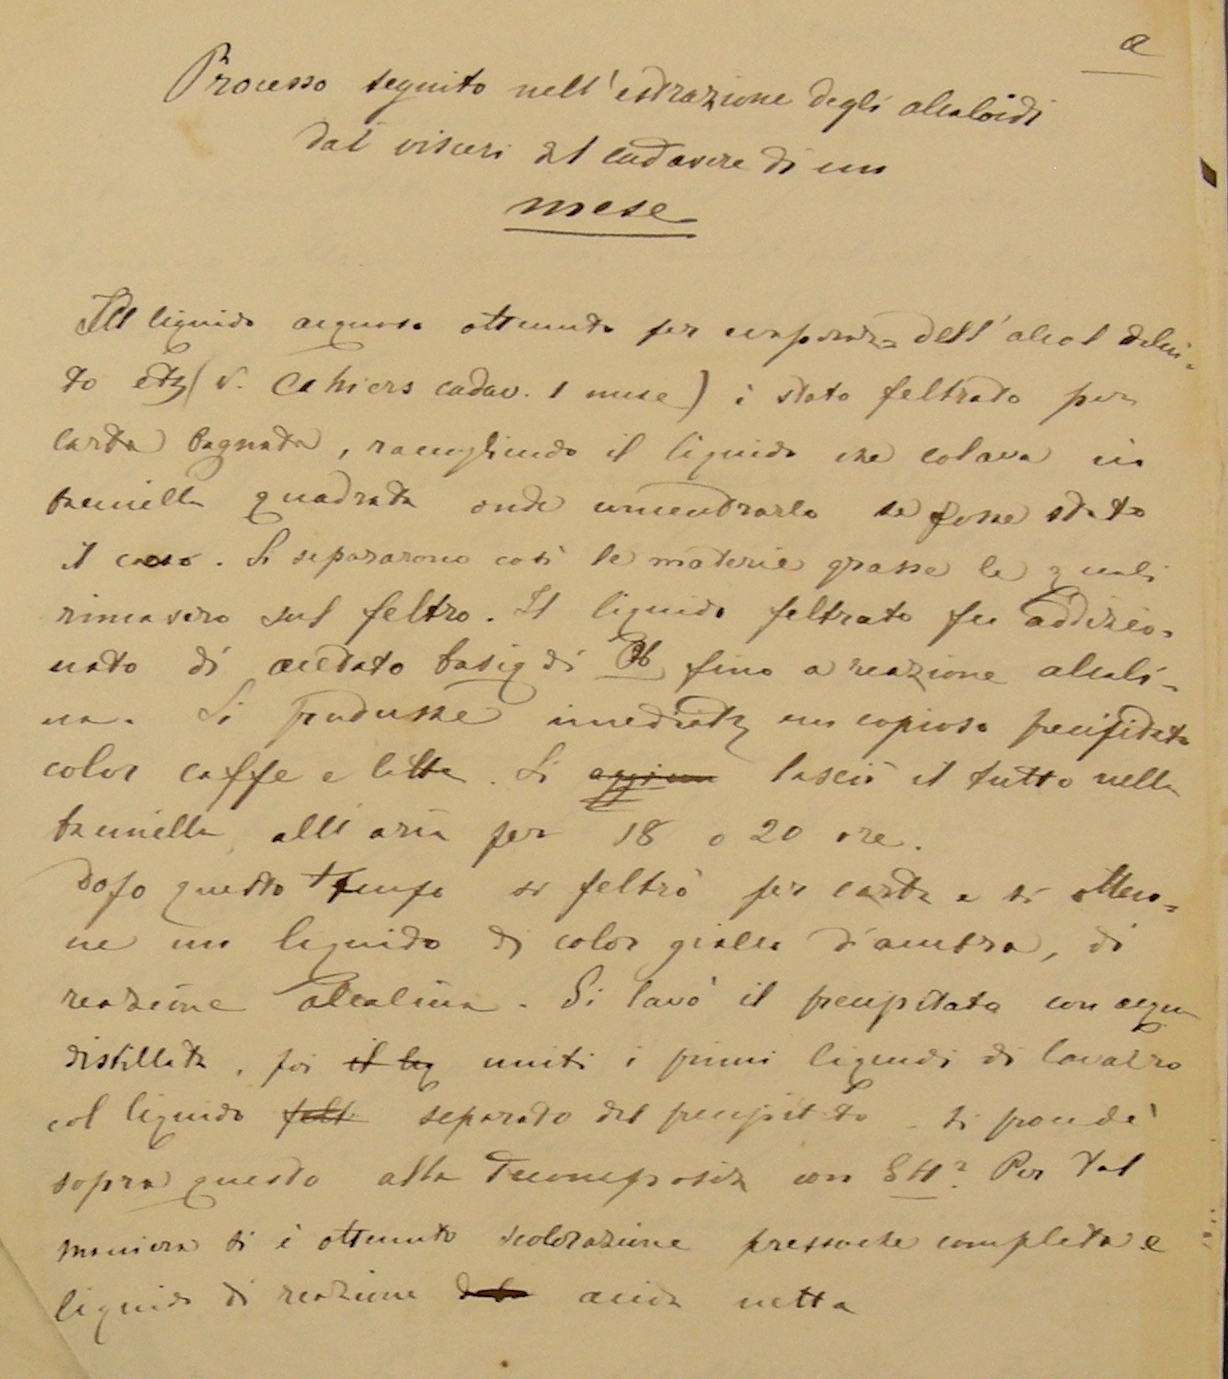 a
Processo seguito nell'estrazione degli alcaloidi
dai visceri del cadavere di un
mese
Il liquido acquoso ottenuto per evaporaz. dell'alcol delui-
to etz (v. Cahiers cadav. 1 mese) è stato feltrato per
carta bagnata, raccogliendo il liquido che colava in
quadrata onde concentrarlo se fosse stato
il caso. Si separarono così le materie grasse le quali
rimasero sul feltro. Il liquido feltrato fu addizio-
nato di acetato basic di Pb fino a reazione alcali-
na. Si produsse imediatz un copioso precipitato
color caffe e latte. Si aggiun lasciò il tutto nella
all'aria per 18 o 20 ore.
Dopo questo tempo si feltrò per carta e si otten-
ne un liquido di color giallo d'ambra, di
reazione alcalina. Si lavò il precipitato con acqua
distillata, poi il liq uniti i primi liquidi di lavazro
col liquido felt separato del precipitato si procedè
sopra questo alla decomposiz con SH². Per tal
maniera si è ottenuto scolorazione pressoche completa e
liquido di reazione acida netta